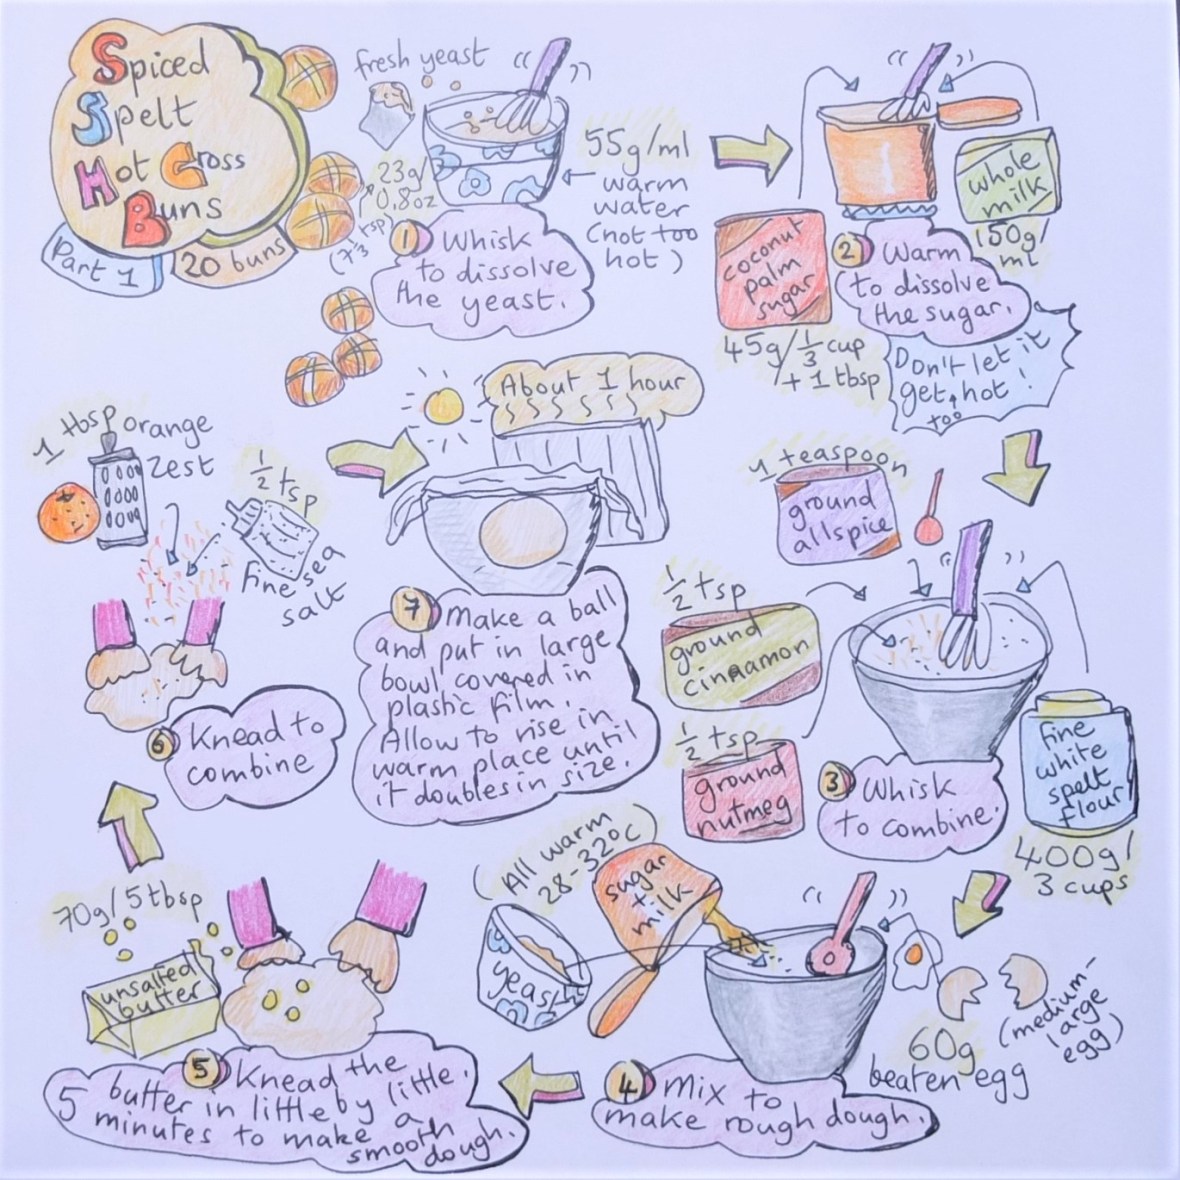 Spiced
Spelt
Hot Cross
Buns
Part 1
20 buns
fresh yeast
23g/
0.8oz
55g/ml
warm
water
(not too
hot)
1 Whisk
to dissolve
the yeast.
coconut
palm
sugar
45g/1/3 cup
+ 1 tbsp
whole
milk
150g/
ml
2 Warm
to dissolve
the sugar.
Don't let it
get hot!
too
1 teaspoon
ground
allspice
1/2 tsp
ground
cinnamon
1/2 tsp
ground
nutmeg
fine
white
spelt
flour
400g/
3 cups
3 Whisk
to combine.
All warm
28-32°C
yeast
sugar
+
milk
60g
beaten egg
(medium-
large
egg)
4 Mix to
make rough dough.
70g/5tbsp
unsalted
butter
5 Knead the
butter in little by little.
5 minutes to make a
smooth
dough.
1 tbsp orange
zest
1/2 tsp
fine sea
salt
6 Knead to
combine
About 1 hour
7 Make a ball
and put in large
bowl covered in
plastic film.
Allow to rise in
warm place until
it doubles in size.